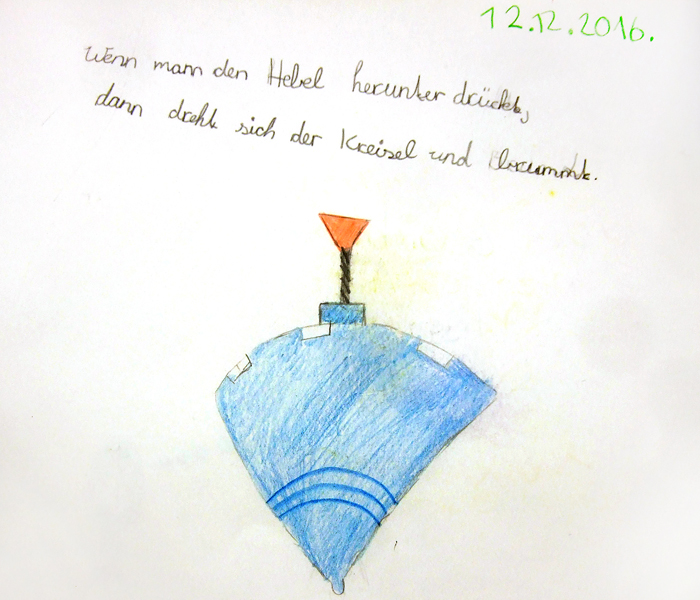 12.12.2016.
Wenn mann den Hebel herunter drückt,
dann dreht sich der Kreisel und brummt.